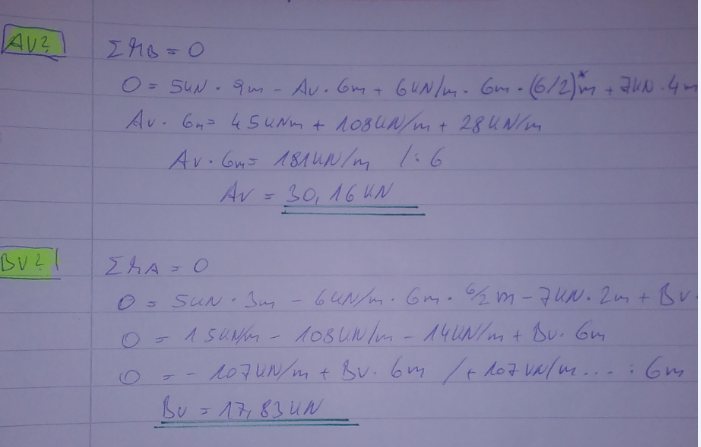 AV?
ΣMB = 0
0 = 5kN · 9m - Av · 6m + 6kN/m · 6m · (6/2)*m + 7kN · 4m
Av · 6m = 45kNm + 108kN/m + 28kN/m
Av · 6m = 181kN/m /:6
Av = 30,16kN
BV?
ΣMA = 0
0 = 5kN · 3m - 6kN/m · 6m · 6/2m - 7kN · 2m + Bv ·
0 = 15kN/m - 108kN/m - 14kN/m + Bv · 6m
0 = - 107kN/m + Bv · 6m /+107kN/m .... : 6m
Bv = 17,83kN